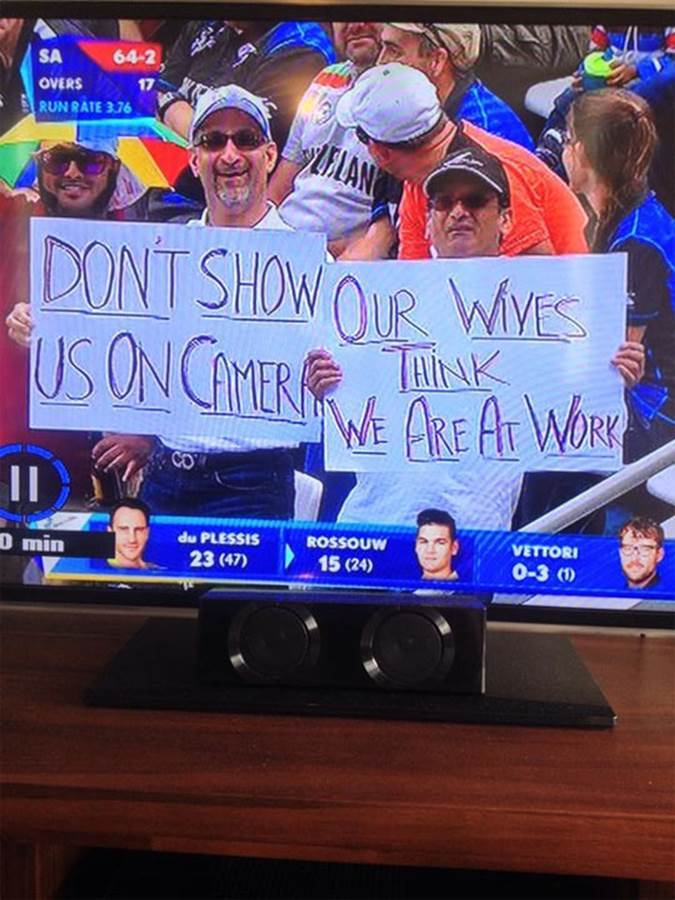 SA 64-2
OVERS 17
RUN RATE 3.76
DON'T SHOW
US ON CAMERA
OUR WIVES
THINK
WE ARE AT WORK
0 min
du PLESSIS
23 (47)
ROSSOUW
15 (24)
VETTORI
0-3 (1)